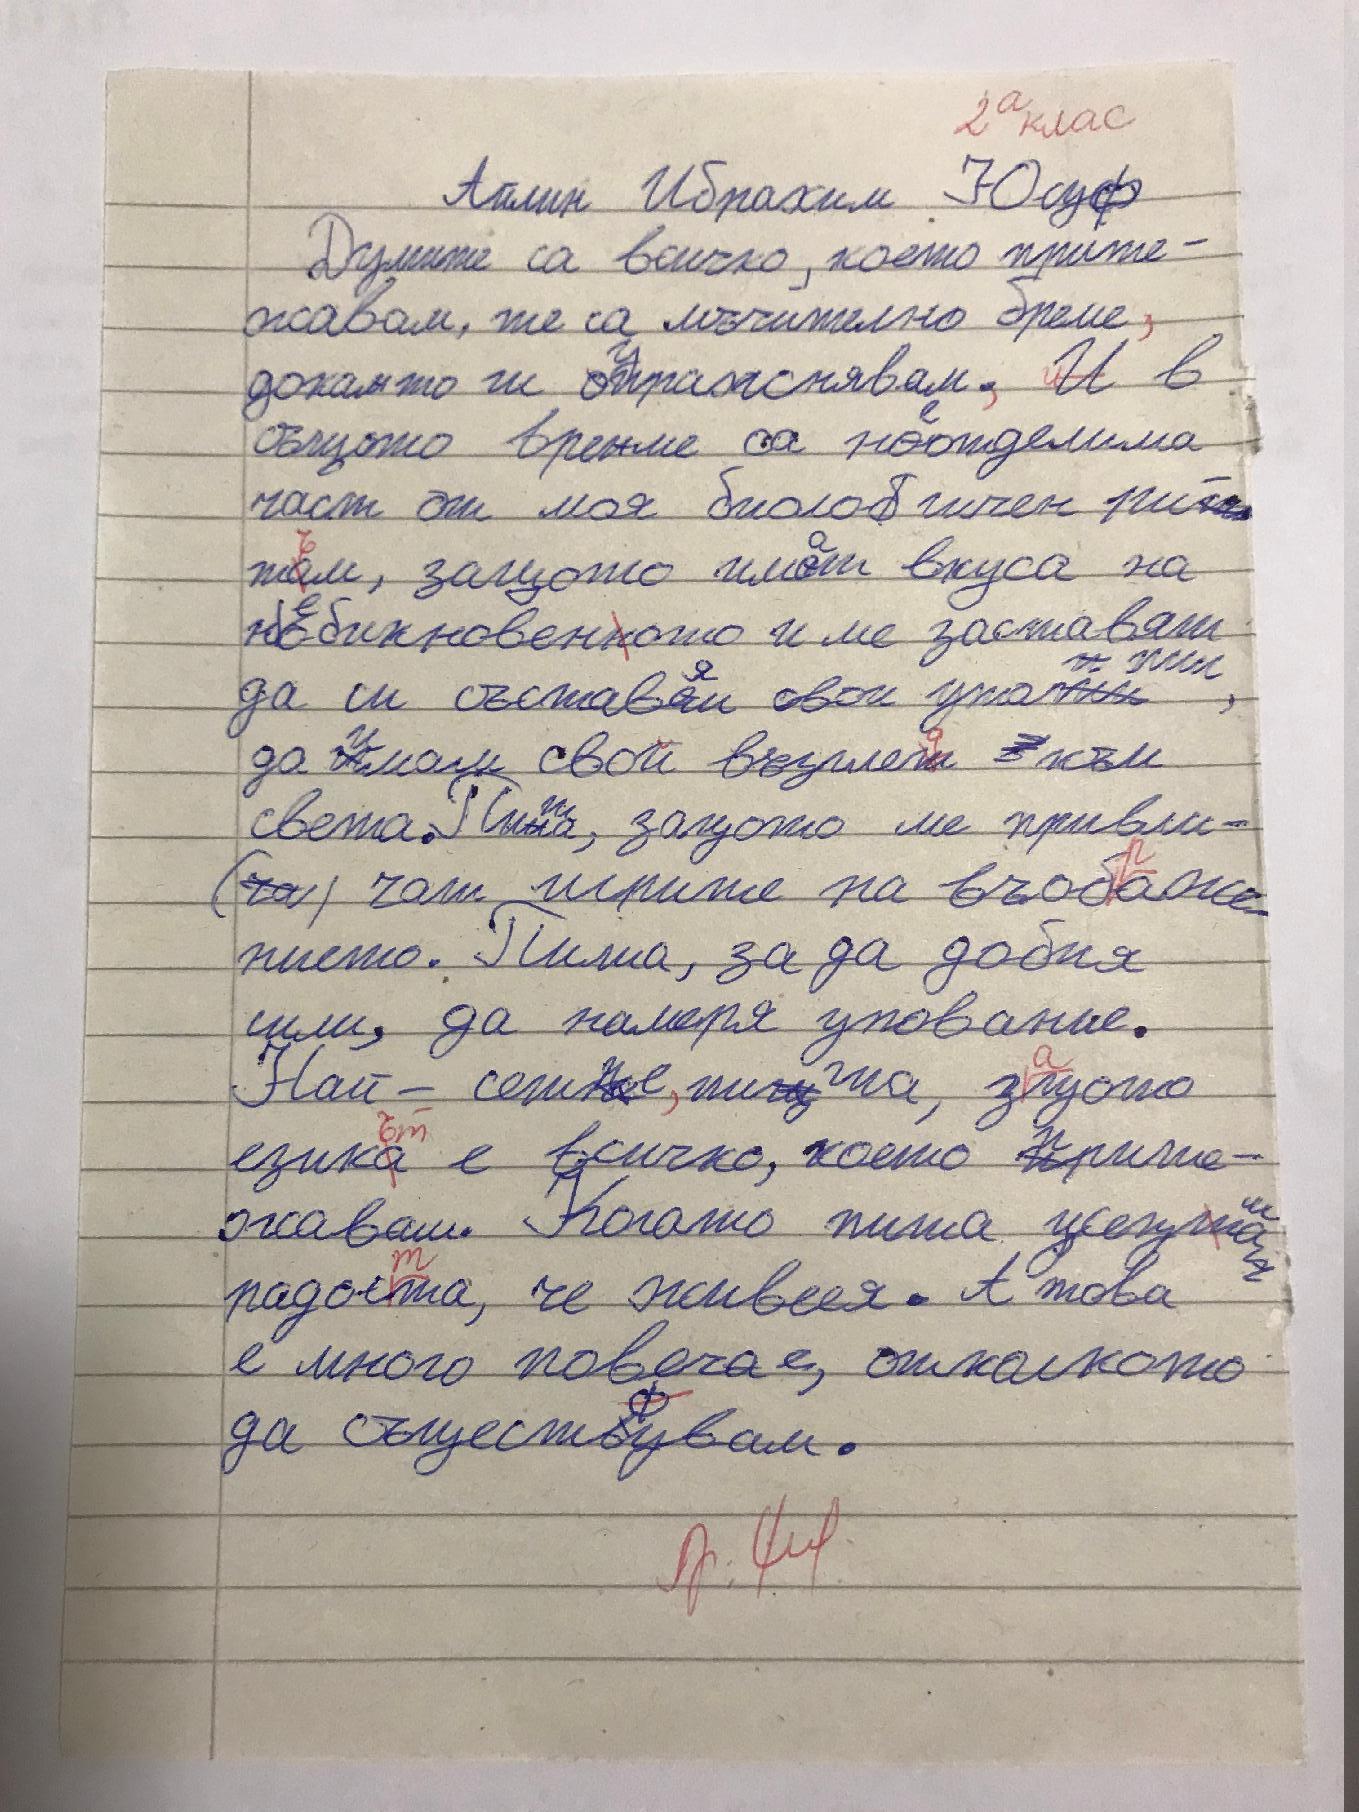 2а клас
Айлин Ибрахим Юсуф
Думите са всичко, което прите-
жавам, те са мъчително бреме,
докато ги упражнявам, и в
същото време са неотделима
част от моя биологичен ри-
тъм, защото имат вкуса на
необикновеното и ме заставят
да си съставям свои
да имам свой възглед към
света. Пиша, защото ме привли-
чат игрите на въображе-
нието. Пиша, за да добия
сили, да намеря упование.
Най-сетне, пиша, защото
езикът е всичко, което прите-
жавам. Когато пиша усещам
радостта, че живея. А това
е много повече, отколкото
да съществувам.